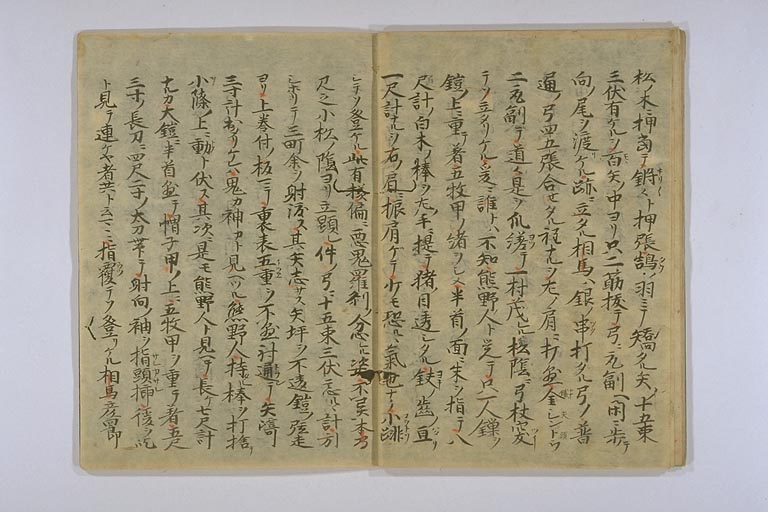 松ノ木押齒テ鏘々ト押張鵠ノ羽ニテ矯タル矢ノ十五束
三伏有ケルヲ百矢ノ中ヨリ只二筋拔テ弓ニ取副閑ニ歩テ
向ノ尾ヲ渡ケル跡ニ立タル相馬ハ銀ノ串打タル弓ノ普
通ノ弓四五張合セタル程ナルヲ左ノ肩ニ打
二取副テ道々是ヲ爪遶テ一村茂レル松陰ニ弓杖突
テソ立タリケル爰ニ誰トハ不知熊野人ト覺テ只一人鏁ノ
鎧ノ上ニ重テ着五枚甲ノ緒ヲシメ半首ノ面ニ朱ヲ指テ八
尺計ノ白木ノ棒ヲ左ノ手ニ提テ猪ノ目透シタル鉞ノ齒ノ亘
一尺計ナルヲ右ノ肩ニ振肩ケテ少モ恐ルル氣色ナク小跳
シテソ登ケル此有樣偏ニ惡鬼羅刹ノ忿レル姿不異本
尺之小松ノ陰ヨリ立顯レ件ノ弓ニ十五束三伏忘ルル計引
シホリテ三町余ヲ射渡ス其矢志ス矢坪ヲ不違鎧ノ弦走
ヨリ上卷付ノ板マテ重表五重ヲ不並射通テ矢
三寸計出タリケレハ鬼カ神カト見ヘツル熊野人持タル棒ヲ打捨
小篠ノ上ニ動ト伏ス其次ニ是モ熊野人ト見テ長ケ七尺計
ナルカ大鎧ニ半首並テ帽子甲ノ上ニ五枚甲ヲ重テ着五尺
三寸ノ長刀ニ四尺二寸ノ太刀帶テ射向ノ袖ヲ指顋揮後ヲ屹
ト見テ連ケヤ者共ト云マヽニ指覆テソ登リケル相馬彦四郎